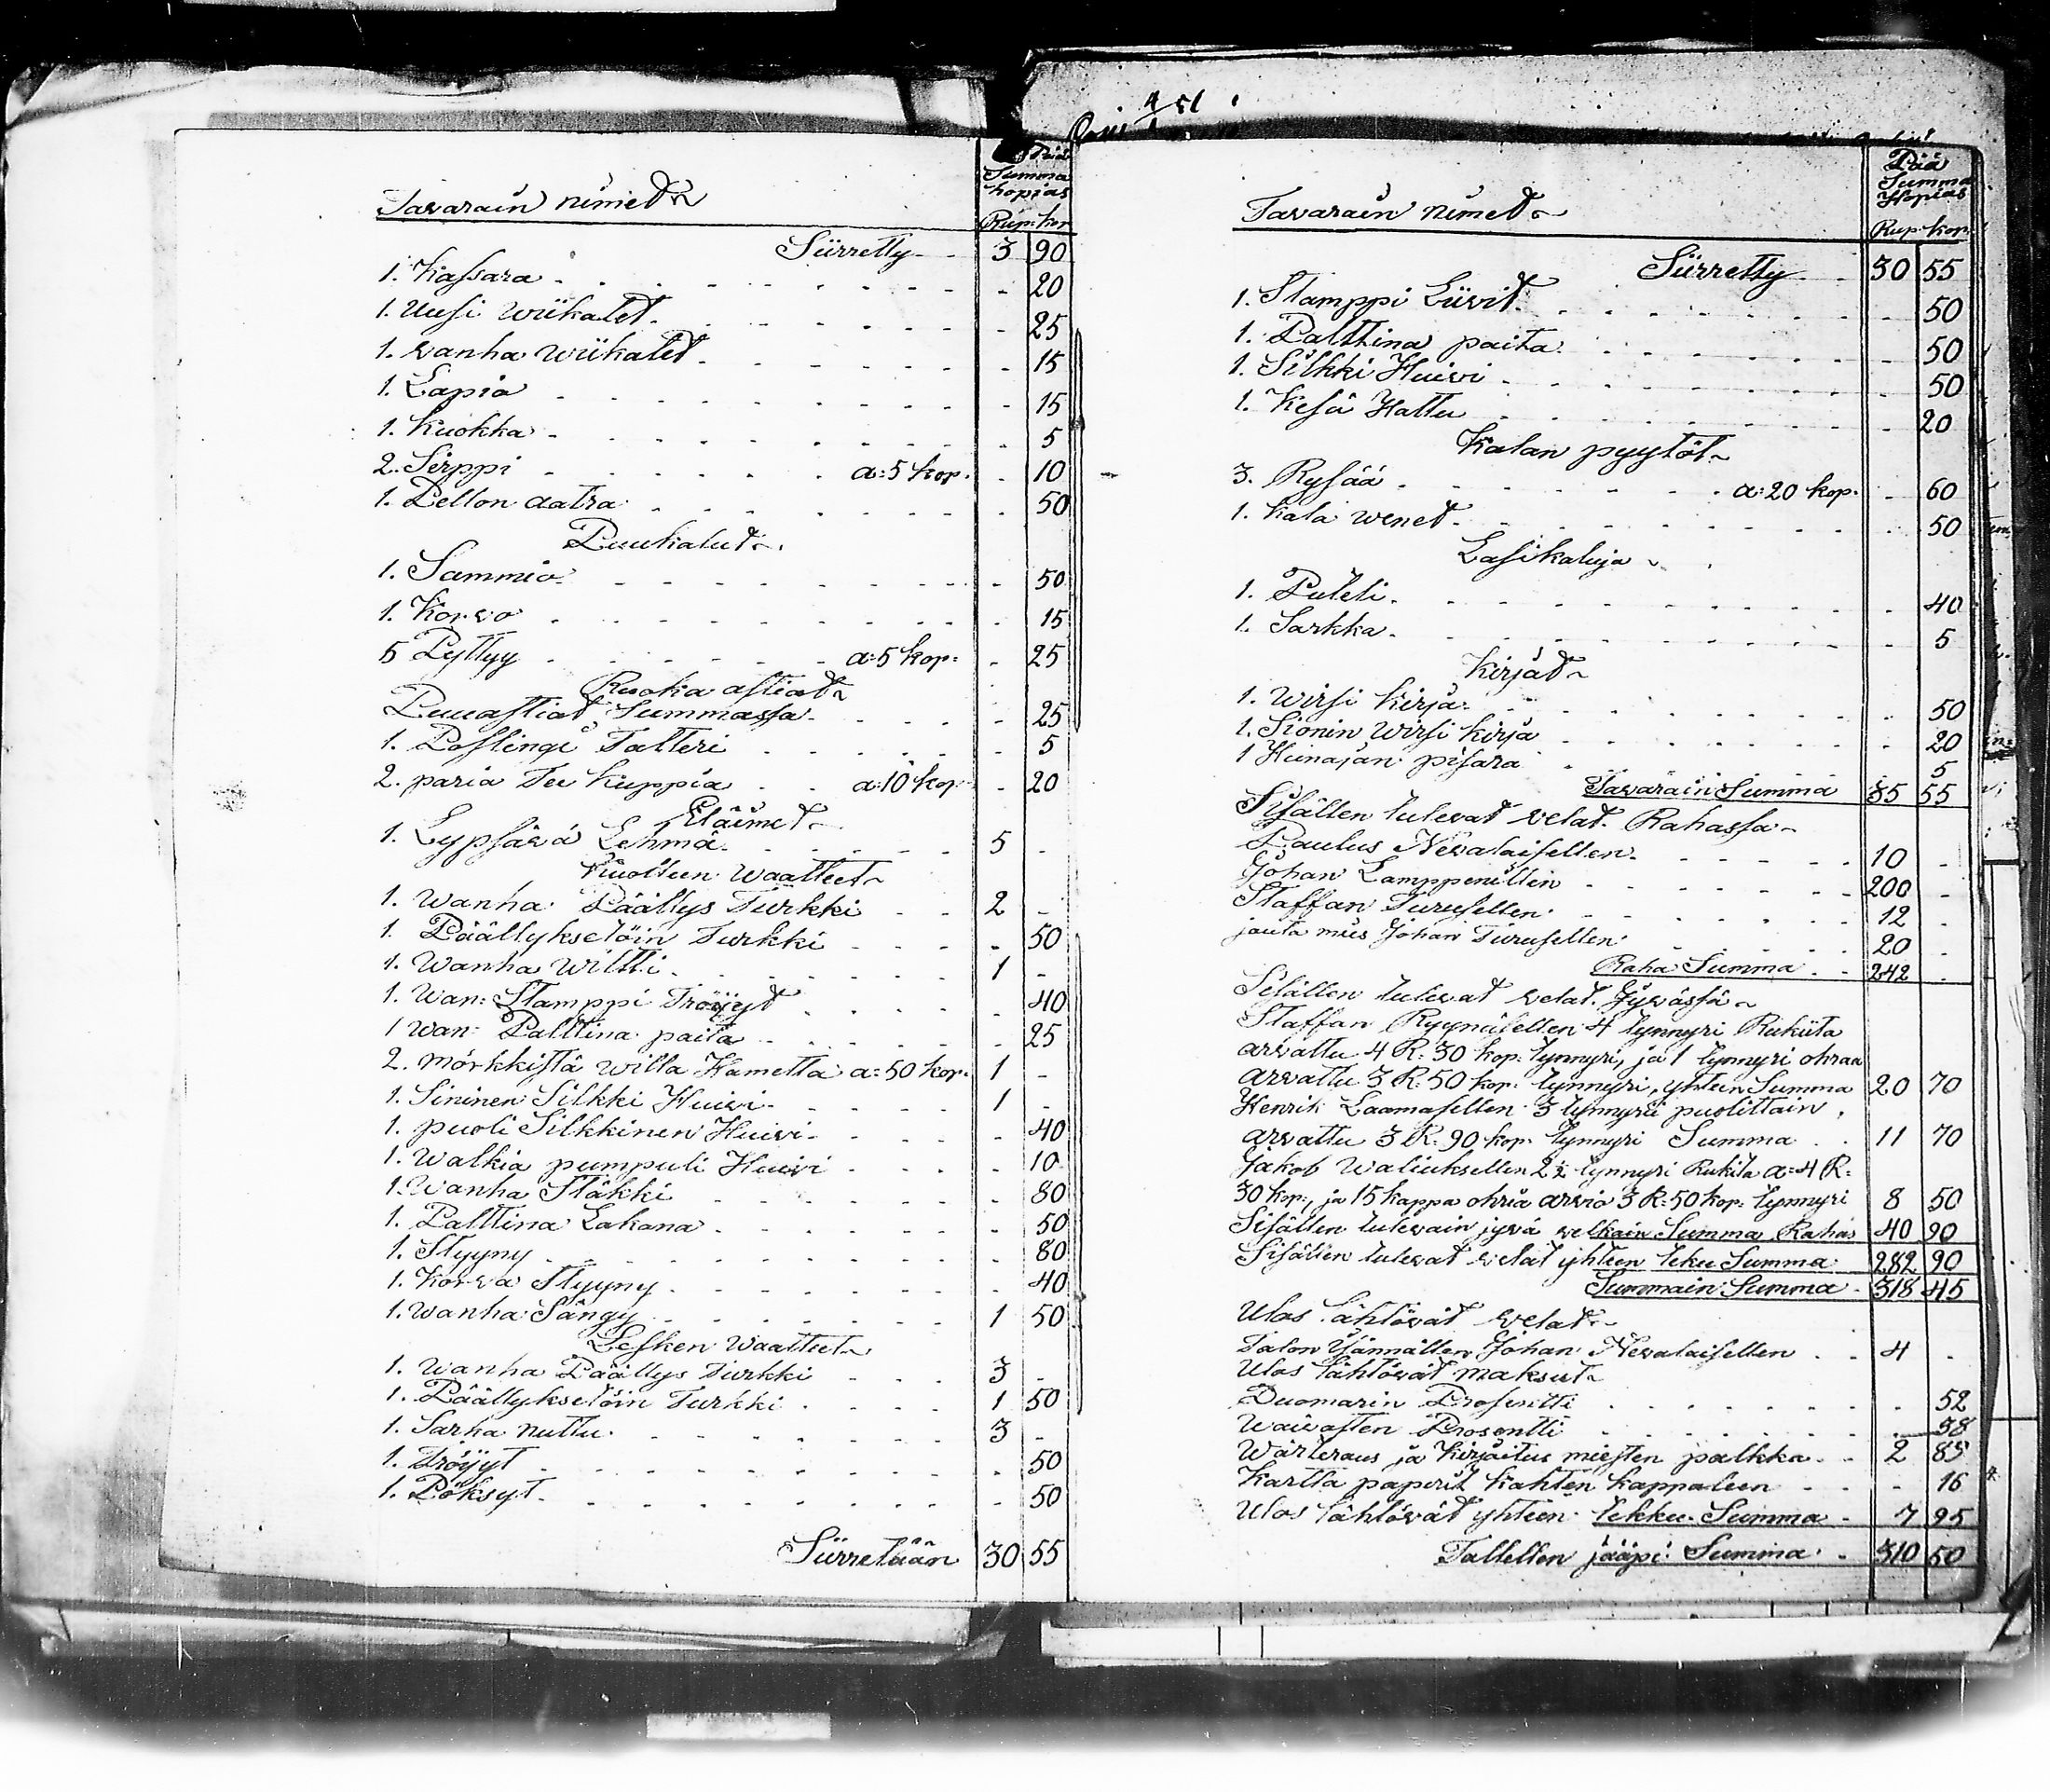 Tavarain nimet
Pää
Summa
hopias
Rup. kop
Siirretty 3 90
1. Kassara 20
1. Uusi wiikatet 25
1. vanha wiikatet 15
1. Lapio 15
1. Kuokka 5
2. Sirppi a: 5 kop. 10
1. Pellon aatra 50
Puukalut
1. Sammio 50
1. Korvo 15
5 Pyttyy a: 5 kop: 25
Ruoka astiat
Puuastiat Summassa 25
1. Poslingi Talteri 5
2. paria Tee kuppia a: 10 kop 20
Eläimet
1. Lypsävä Lehmä 5 -
Kuolleen Waatteet
1. Wanha Päällys Turkki 2 -
1. Päällyksetöin Turkki 50
1. Wanha Wiltti 1 -
1. Wan: Stamppi Tröijyt 40
1 Wan: Palttina paita 25
2. mörkkistä willa Hametta a: 50 kop. 1 -
1. Sininen Silkki Huivi 1 -
1. puoli Silkkinen Huivi 40
1. Walkia pumpuli Huivi 10
1. Wanha Stäkki 80
1. Palttina Lakana 50
1. Styyny 80
1. Korva Styyny 40
1. Wanha Sängy 1 50
Lesken Waatteet
1. Wanha Päällys Turkki 3 -
1. Päällyksetöin Turkki 1 50
1. Sarka nuttu 3 -
1. Tröijyt 50
1. Pöksyt 50
Siirretään 30 55
4/51
Tavarain nimet
Pää
Summa
Hopias
Rup. kop.
Siirretty 30 55
1. Stamppi Liivit 50
1. Palttina paita 50
1. Silkki Huivi 50
1. Kesä Hattu 20
Kalan pyytöt
3. Rysää a: 20 kop. 60
1. Kala wenet 50
Lasikaluja
1. Puteli 40
1. Sarkka 5
Kirjat
1. Wirsi kirja 50
1. Sionin Wirsi kirja 20
1 Hunajan pisara 5
Tavarain Summa 35 55
Sisällen tulevat velat Rahassa
Paulus Nevalaisellen 10 -
Johan Lamppenillen 200 -
Staffan Turusellen 12 -
jauta mies Johan Turusellen 20 -
Raha Summa 242 -
Sisällen tulevat velat Jyvässä
Staffan Ryynäsellen 4 tynnyri Rukiita
arvattu 4 R: 30 kop: tynnyri, ja 1 tynnyri ohraa
arvattu 3 R: 50 kop: tynnyri, yhteen Summa 20 70
Henrik Laamasellen 3 tynnyrii puolittain
arvattu 3 R: 90 kop: tynnyri Summa 11 70
Jakob Waliuksellen 2½ tynnyri Rukita a: 4 R:
30 kop:, ja 15 kappa ohria arvio 3 R: 50 kop: tynnyri 8 50
Sisällen tulevain jyvä velkain Summa Rahas 40 90
Sisällen tulevat velat yhteen teku Summa 282 90
Summain Summa 318 45
Ulos lähtövät velat
Talon Isännällen Johan Nevalaisellen 4 -
Ulos lähtövät maksut
Duomarin Prosentti 52
Waivasten Prosentti 38
Wärteraus ja Kirjoitus miesten palkka 2 89
Kartta paperit Kahten kappaleen 16
Ulos lähtövät yhteen tekku Summa 7 95
Tallellen jääpi Summa 310 50